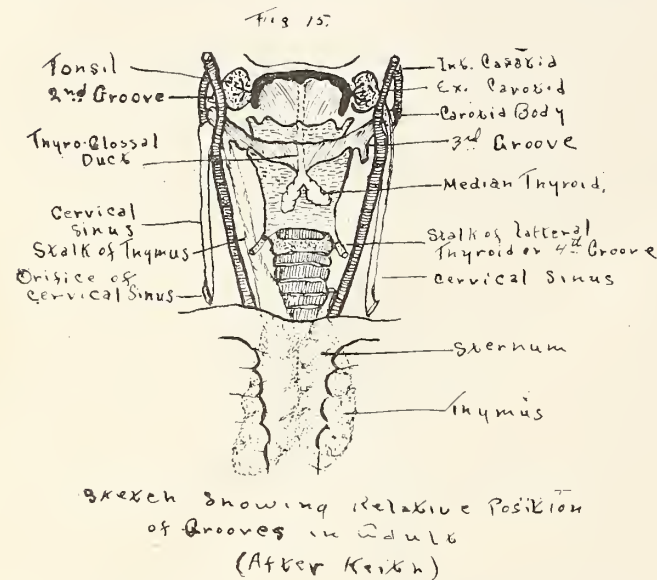 Fig 15.
Tonsil
2nd Groove
Thyro-Glossal
Duct
Cervical
Sinus
Stalk of Thymus
Orifice of
Cervical Sinus
Int. Carotid
Ex. Carotid
Carotid Body
3rd Groove
Median Thyroid,
Stalk of Latteral
Thyroid or 4th Groove
Cervical Sinus
Sternum
Thymus
Sketch Showing Relative Position
of Grooves in Adult
(After Keith)